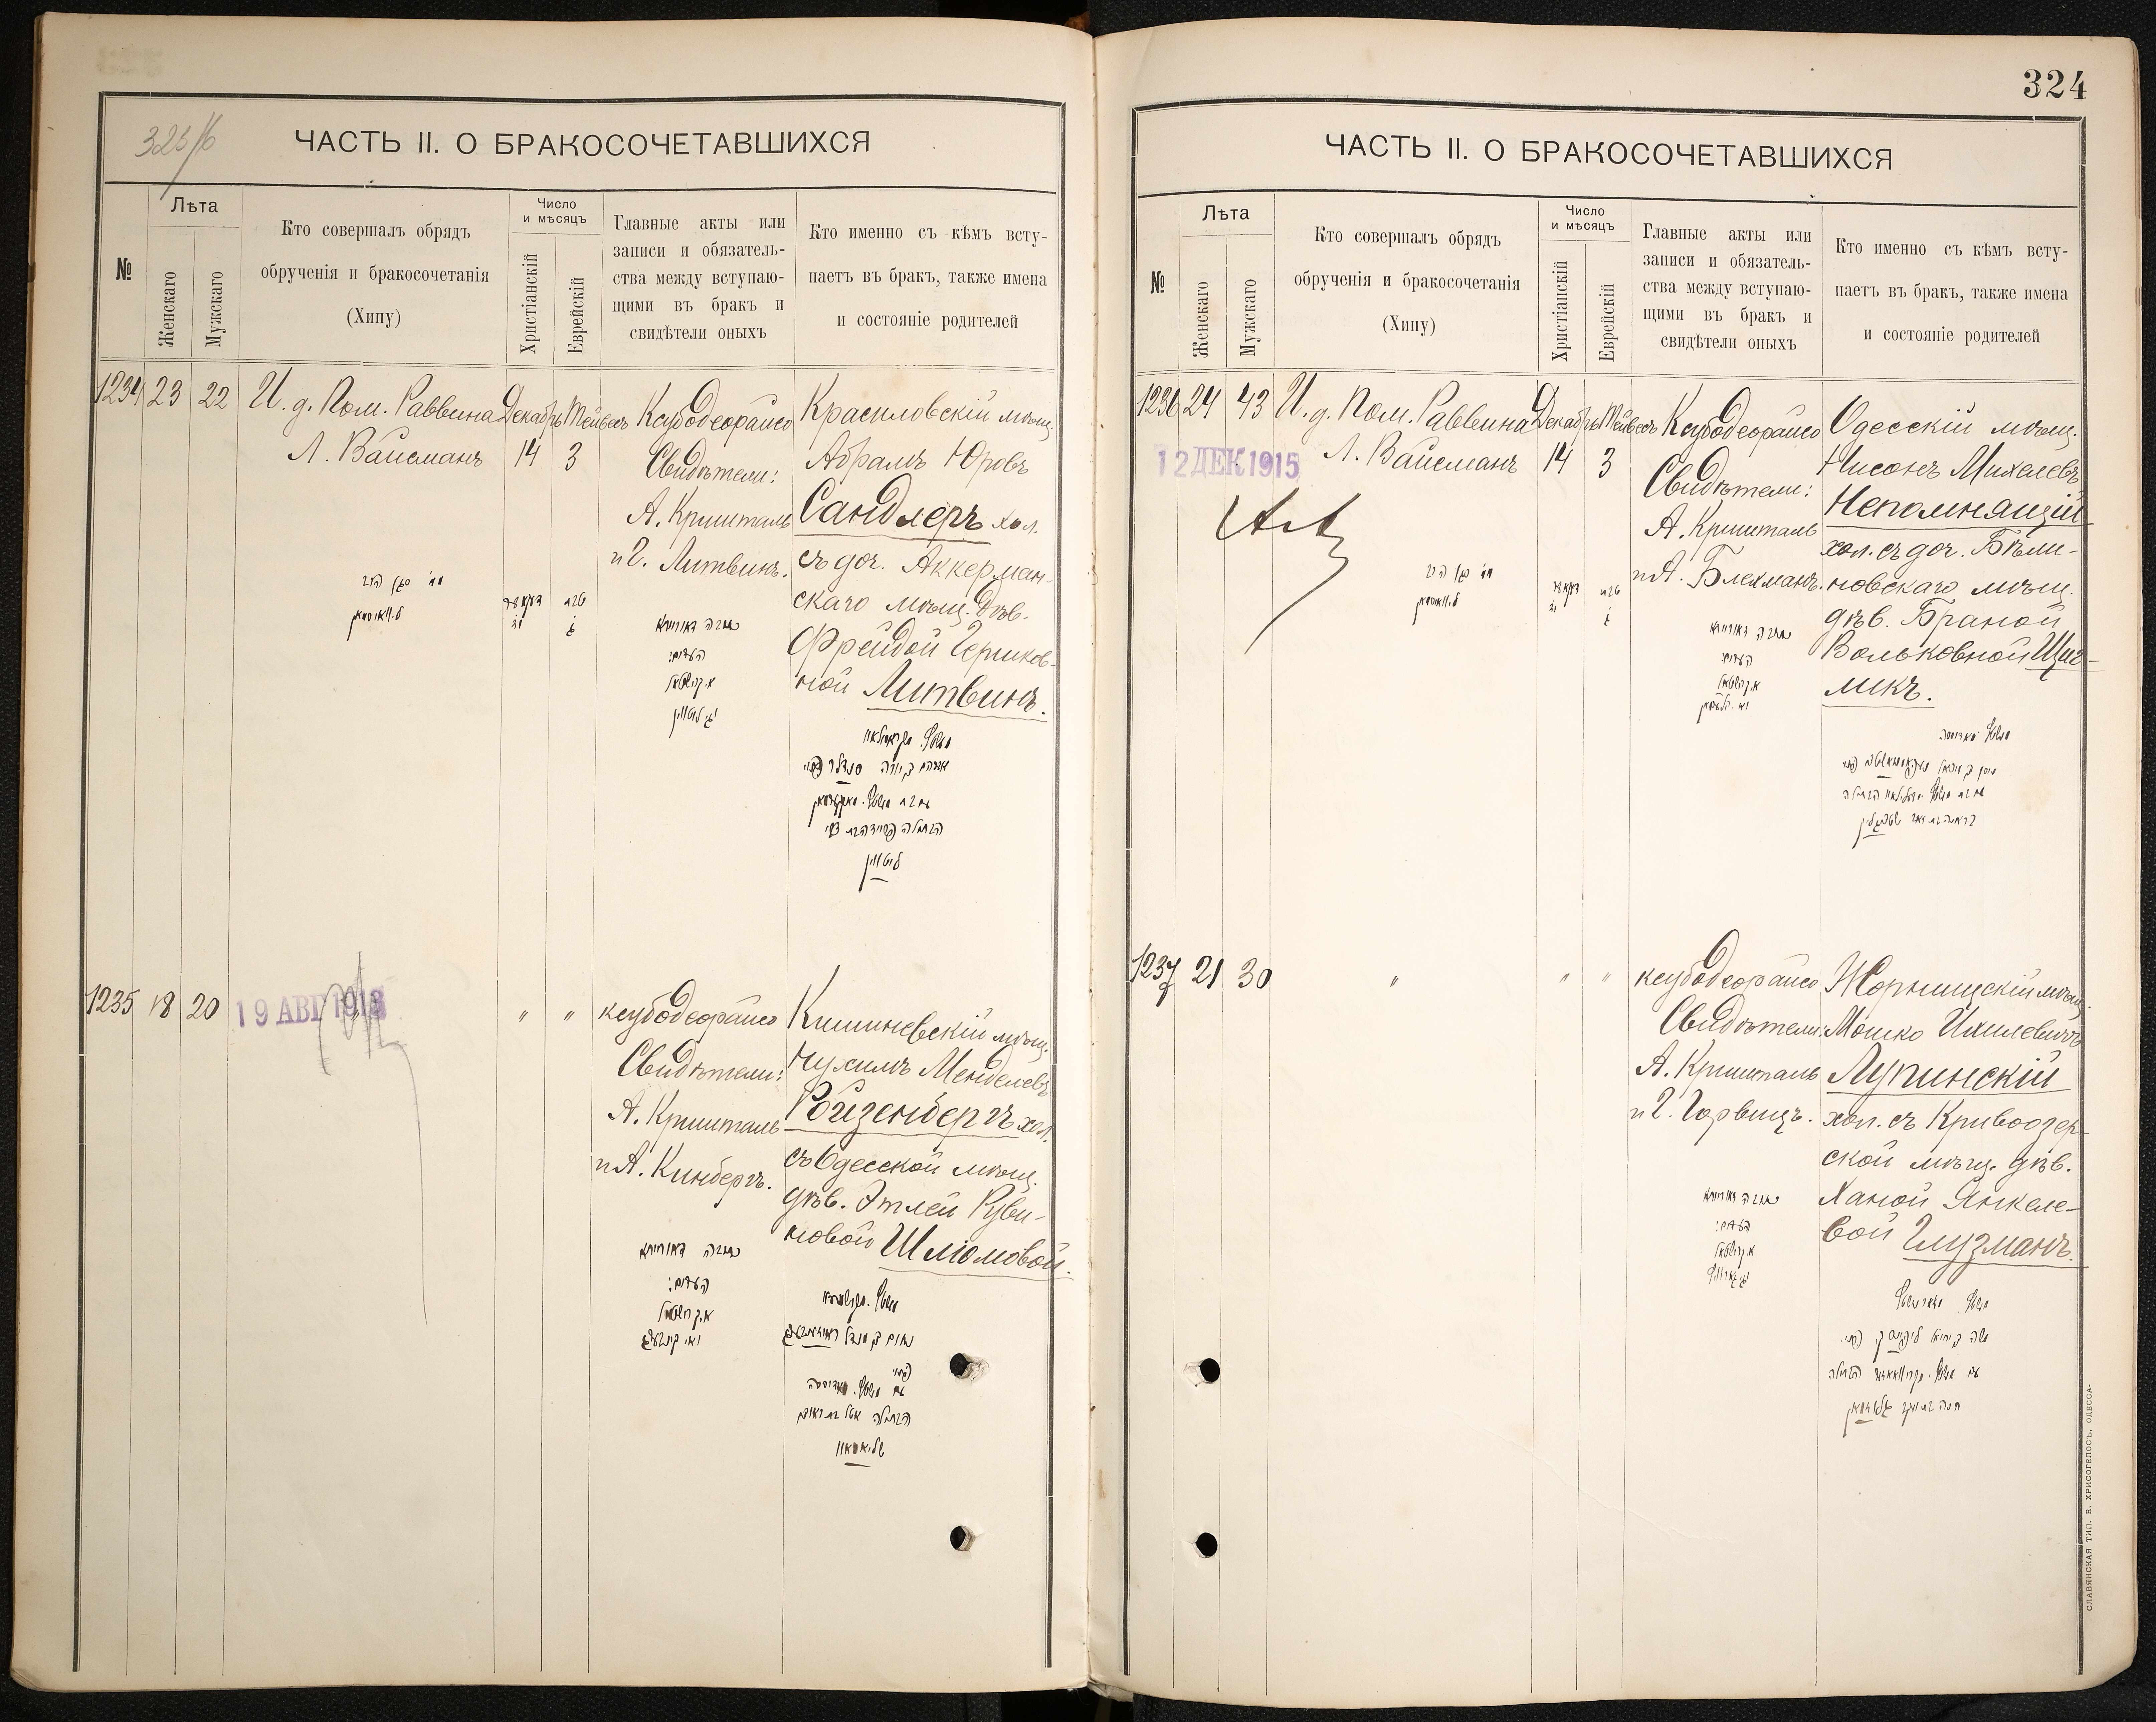 323/б
ЧАСТЬ II. О БРАКОСОЧЕТАВШИХСЯ
№
Лѣта
Женскаго
Мужскаго
Кто совершалъ обрядъ
обрученія и бракосочетанія
(Хипу)
Число
и мѣсяцъ
Христіанскій
Еврейскій
Главные акты или
записи и обязатель-
ства между вступаю-
щими въ бракъ и
свидѣтели оныхъ
Кто именно съ кѣмъ всту-
паетъ въ бракъ, также имена
и состояніе родителей
1234 23 22
И. д. Пом. Раввина
Л. Вайсманъ
Декабрь
14
Тейвесъ
3
Ксубодеорайсо
Свидѣтели:
А. Кришталь
и Г. Литвинъ.
Красиловскій мѣщ.
Абрамъ Юровъ
Сандлеръ хол.
съ доч. Аккерман-
скаго мѣщ. дѣв.
Фрейдой Гершков-
ной Литвинъ.
כתובה דאורייתא
העדים:
א. קרישטאל
וג. ליטווין
ליטווין
1235 18 20
19 АВГ 1913
" "
ксубодеорайсо
Свидѣтели:
А. Кришталь
и А. Кинбергъ.
Кишиневскій мѣщ.
Нухимъ Менделевъ
Ройзенбергъ хол.
съ Одесской мѣщ.
дѣв. Этлей Руви-
новой Шлiомовой.
כתובה דאורייתא
העדים:
א. קרישטאל
וא. קינבערג
324
ЧАСТЬ II. О БРАКОСОЧЕТАВШИХСЯ
№
Лѣта
Женскаго
Мужскаго
Кто совершалъ обрядъ
обрученія и бракосочетанія
(Хипу)
Число
и мѣсяцъ
Христіанскій
Еврейскій
Главные акты или
записи и обязатель-
ства между вступаю-
щими въ бракъ и
свидѣтели оныхъ
Кто именно съ кѣмъ всту-
паетъ въ бракъ, также имена
и состояніе родителей
1236 24 43
12 ДЕК 1915
И. д. Пом. Раввина
Л. Вайсманъ
Декабрь
14
Тейвесъ
3
Ксубодеорайсо
Свидѣтели:
А. Кришталь
и А. Блехманъ.
Одесскій мѣщ.
Нисонъ Михелевъ
Непомнящій
хол. съ доч. Бѣли-
новскаго мѣщ.
дѣв. Браной
Вольковной Щиг-
ликъ.
כתובה דאורייתא
העדים:
א. קרישטאל
1237 21 30
" " "
ксубодеорайсо
Свидѣтели:
А. Кришталь
и Г. Гурвицъ.
Жорнищскій мѣщ.
Мошко Ихилевичъ
Лупинскій
хол. съ Кривоозер-
ской мѣщ. дѣв.
Ханой Янкеле-
вой Глузманъ.
כתובה דאורייתא
העדים:
א. קרישטאל
СЛАВЯНСКАЯ ТИП. Е. ХРИСОГЕЛОСЪ, ОДЕССА-